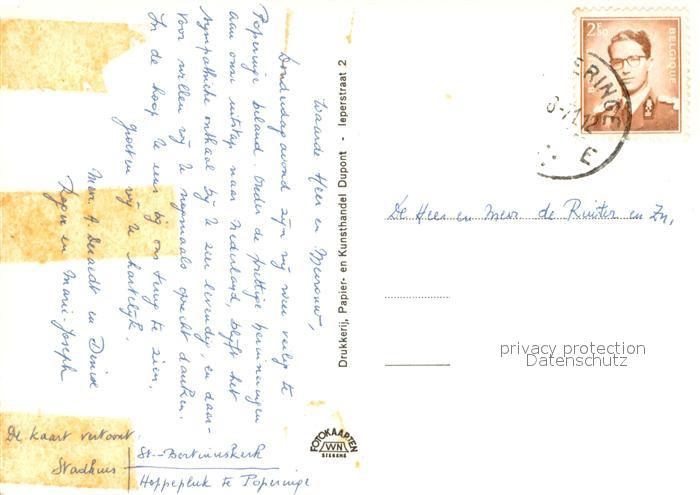 Waarde Heer en Mevrouw,
Donderdag avond zijn wij weer veilig te
Poperinge beland. Onder de prettige herinneringen
aan onze uitstap naar Nederland, blijft het
sympathieke onthaal bij U zeer levendig, en daar-
voor willen wij U nogmaals oprecht danken.
In de hoop U eens bij ons terug te zien,
groeten wij U hartelijk.
Mevr. A. en Denise
Roger en Marie-Joseph
De kaart vertoont
Stadhuis
St-Bertinuskerk
Hoppepluk te Poperinge
Drukkerij, Papier- en Kunsthandel Dupont - Ieperstraat 2
FOTOKAARTEN
WN
2F50
BELGIQUE
8-71.12
E
De Heer en Mevr de Ruiter en Zn,
privacy protection
Datenschutz